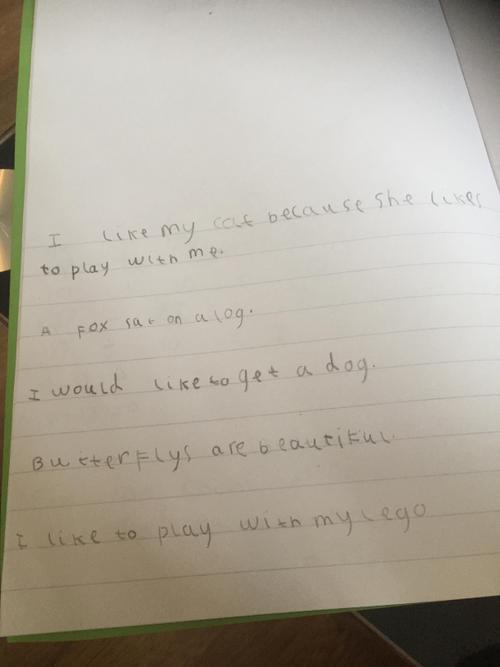 I like my cat because she likes
to play with me.
A fox sat on a log.
I would like to get a dog.
Butterflys are beautiful.
I like to play with my lego